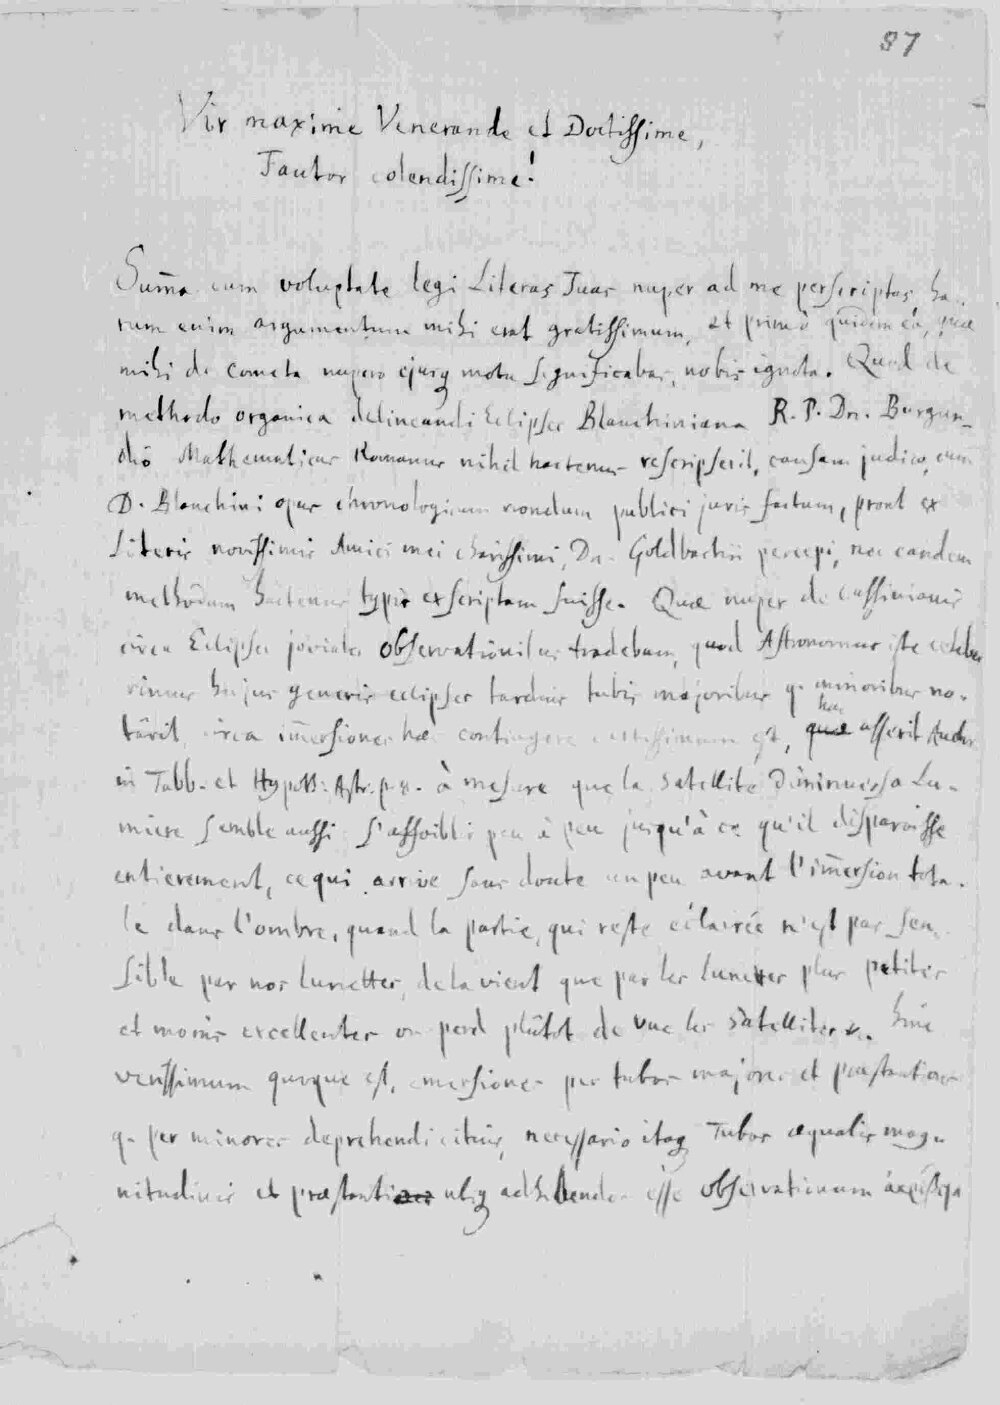 87
Vir maxime Venerande et Doctissime,
Fautor colendissime!
Sum̄a cum voluptate legi Literas Tuas nuper ad me perscriptas, ha-
rum enim argumentum mihi erat gratissimum, et primò quidem ea, quæ
mihi de Cometa nupero ejusq motu significabas, nobis ignota. Quod de
methodo organica delineandi Eclipses Blanchiniana R. P. Dn. Burgun-
dio Mathematicus Romanus nihil hactenus rescripserit, causam judico, cum
D. Blanchini opus chronologicum nondum publici juris factum, prout ex
Literis novissimis Amici mei charissimi, Dn. Goldbachii percepi, nec eandem
methodum hactenus typis exscriptam fuisse. Quæ nuper de Cassinianis
circa Eclipses joviales observationibus tradebam, quod Astronomus iste celeber
rimus hujus generis eclipses tardius tubis majoribus q. minoribus no-
târit, circa im̄ersiones hæc contingere certissimum est, hæc asserit Auctor
in Tabb. et Hypoth: Astr. p. 8. à mesure que la Satellite diminue, sa Lu-
miere semble aussi s'affoiblir peu à peu jusqu'à ce qu'il disparoisse
entierement, ce qui arrive sans doute un peu avant l'im̄ersion tota-
le dans l'ombre, quand la partie, qui reste éclairée n'est pas sen-
sible par nos lunettes, de la vient que par les lunettes plus petites
et moins excellentes on perd plûtot de vue les Satellites &c. Hinc
verissimum quoque est, emersiones per tubos majores et præstantiores
q. per minores deprehendi citius, necessario itaq Tubos æqualis mag-
nitudinis et præstanti ubiq adhibendos esse observationum ἀκρίβεια